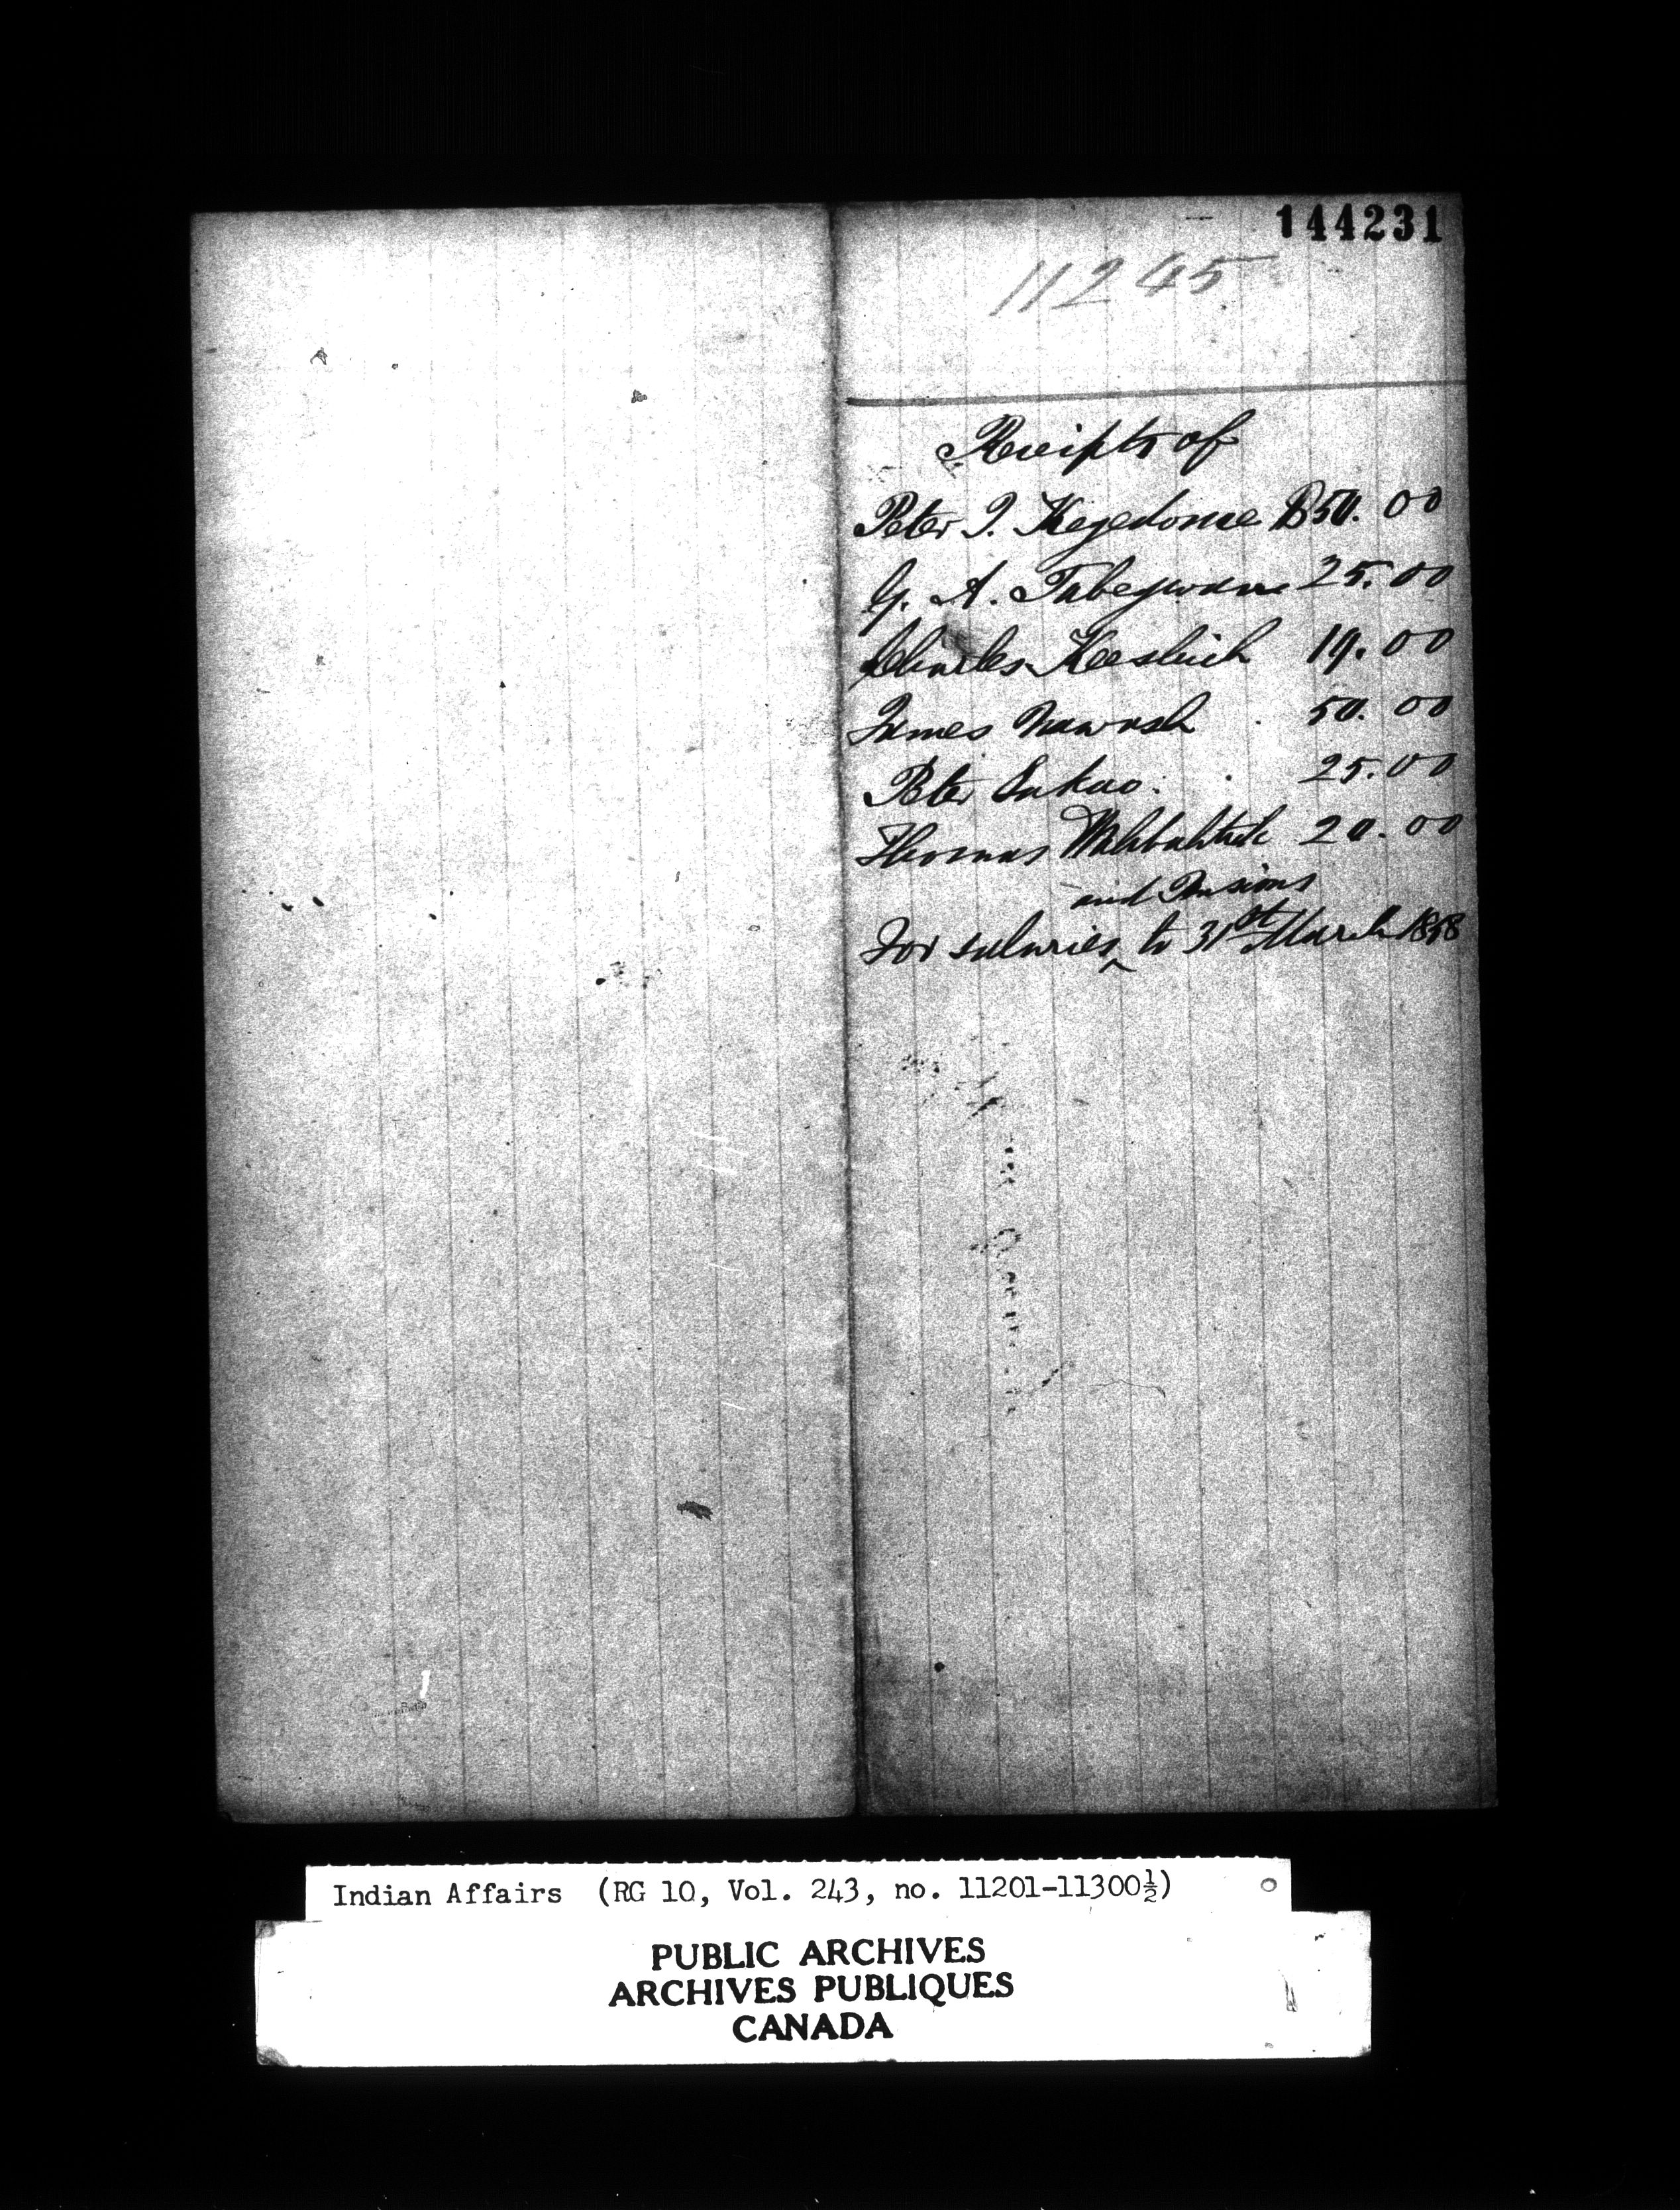 144231
11245
Receipts of
Peter J. Kegedonce $50.00
G. A. Tabegwun 25.00
Charles Keeshick 19.00
James Nawash 50.00
Peter Sakao. 25.00
Thomas 20.00
and Pensions
For salaries ^ to 31st March 1858
Indian Affairs (RG 10, Vol. 243, no. 11201-11300½)
PUBLIC ARCHIVES
ARCHIVES PUBLIQUES
CANADA